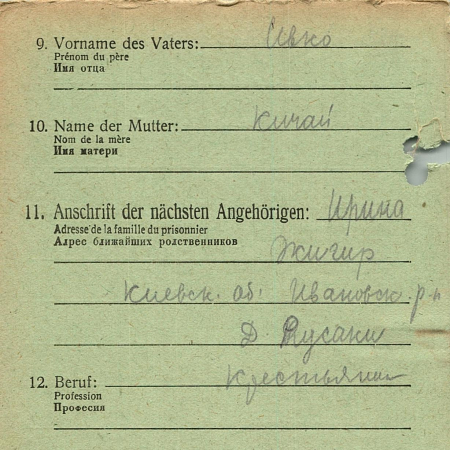 9. Vorname des Vaters: Ивко
Prénom du père
Имя отца
10. Name der Mutter: Кичай
Nom de la mère
Имя матери
11. Anschrift der nächsten Angehörigen: Ирина
Adresse de la famille du prisonnier
Адрес ближайших родственников
Жигир
Киевск. об. Ивановск. р-н
Д. Русаки
12. Beruf: Крестьянин
Profession
Професия